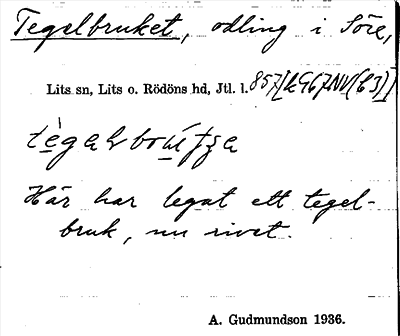 Tegelbruket, odling i Söre,
Lits sn, Lits o. Rödöns hd, Jtl. l.
Här har legat ett tegel-
bruk, nu rivet.
A. Gudmundson 1936.